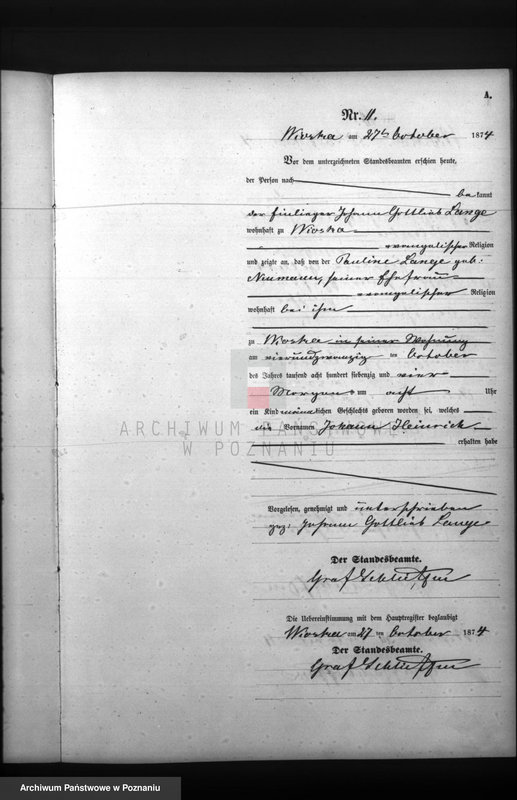 A.
Nr. 11.
Wioska am 27ten October 1874
Vor dem unterzeichneten Standesbeamten erschien heute,
der Person nach
bekannt
der Einlieger Johann Gottlieb Lange
wohnhaft zu Wioska
evangelischer Religion
und zeigte an, daß von der Pauline Lange geb:
Neumann, seiner Ehefrau
evangelischer Religion
wohnhaft bei ihm
zu Wioska in seiner Wohnung
am vierundzwanzig ten October
des Jahres tausend acht hundert siebenzig und vier
Morgens um acht Uhr
ein Kind männlichen Geschlechts geboren worden sei, welches
die Vornamen Johann Heinrich
erhalten habe
ARCHIWUM PAŃSTWOWE
W POZNANIU
Vorgelesen, genehmigt und unterschrieben
gez: Johann Gottlieb Lange
Der Standesbeamte.
Graf Schlieffen
Die Uebereinstimmung mit dem Hauptregister beglaubigt
Wioska am 27 ten October 1874
Der Standesbeamte.
Graf Schlieffen
Archiwum Państwowe w Poznaniu